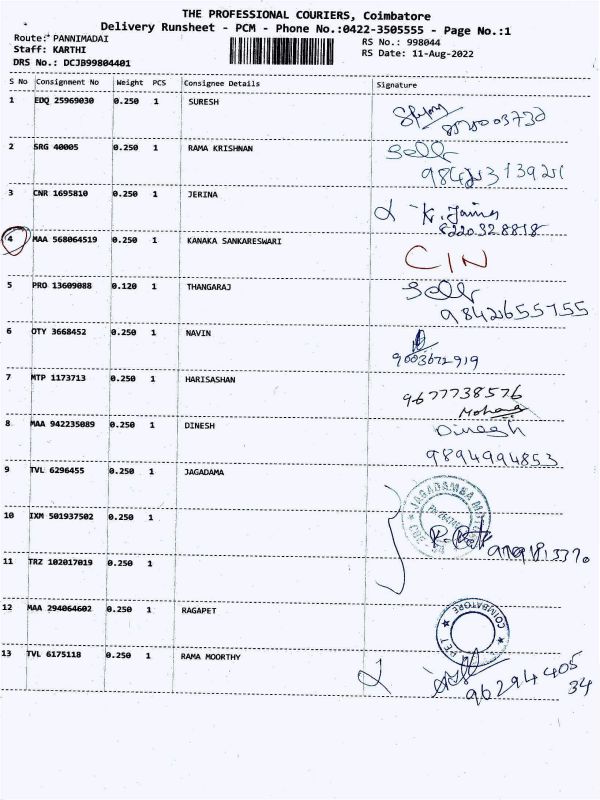 THE PROFESSIONAL COURIERS, Coimbatore
Delivery Runsheet - PCM - Phone No.:0422-3505555 - Page No.:1
Route: PANNIMADAI RS No.: 998044
Staff: KARTHI RS Date: 11-Aug-2022
DRS No.: DCJB99804401
S No Consignment No Weight PCS Consignee Details Signature
1 EDQ 25969030 0.250 1 SURESH
2 SRG 40005 0.250 1 RAMA KRISHNAN
3 CNR 1695810 0.250 1 JERINA K. James
8220328818
4 MAA 568064519 0.250 1 KANAKA SANKARESWARI CIN
5 PRO 13609088 0.120 1 THANGARAJ
9842655755
6 OTY 3668452 0.250 1 NAVIN
9003672919
7 MTP 1173713 0.250 1 HARISASHAN 9677738576
8 MAA 942235089 0.250 1 DINESH Dinesh
9894994853
9 TVL 6296455 0.250 1 JAGADAMA
JAGADAMBA
10 IXM 501937502 0.250 1
11 TRZ 102017019 0.250 1
12 MAA 294064602 0.250 1 RAGAPET
COIMBATORE
13 TVL 6175118 0.250 1 RAMA MOORTHY
96294405
34